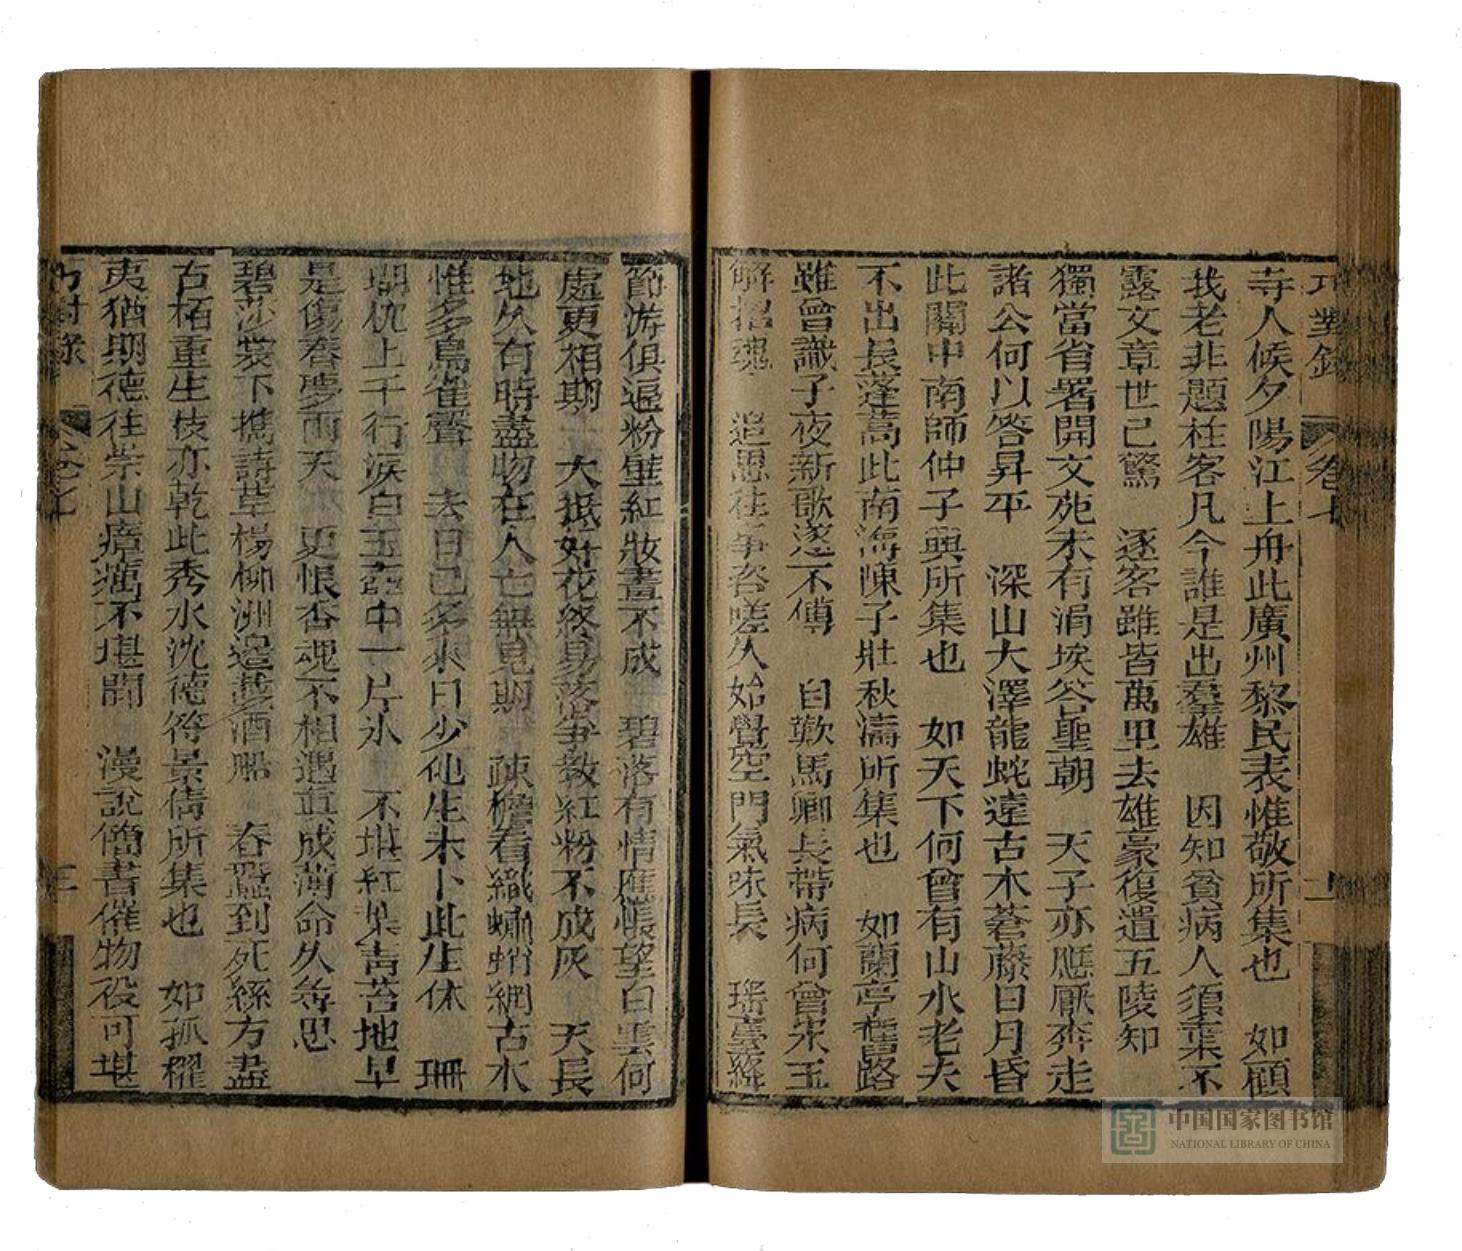 巧對錄 卷七 二
寺人候夕陽江上舟此廣州黎民表惟敬所集也 如顧
我老非題柱客凡今誰是出羣雄 因知貧病人須棄不
露文章世已驚 逐客雖皆萬里去雄豪復遣五陵知
獨當省署開文苑未有涓埃答聖朝 天子亦應厭奔走
諸公何以答昇平 深山大澤龍蛇遠古木蒼藤日月昏
此關中南師仲子興所集也 如天下何曾有山水老夫
不出長蓬蒿此南海陳子壯秋濤所集也 如蘭亭舊路
雖曾識子夜新歌遂不傳 自歎馬卿長帶病何曾宋玉
解招魂 追思往事咨嗟久始覺空門氣味長 瑤臺絳
節游俱遍粉壁紅妝畫不成 碧落有情應悵望白雲何
處更相期 大抵好花終易落爭教紅粉不成灰 天長
地久有時盡物在人亡無見期 疎檐看織蠨蛸網古木
惟多鳥雀聲 去日已多來日少他生未卜此生休 珊
瑚枕上千行淚白玉壺中一片氷 不堪紅葉青苔地早
是傷春夢雨天 更恨香魂不相遇直成薄命久尋思
碧莎裳下攜詩草楊柳洲邊載酒船 春蠶到死絲方盡
古栢重生枝亦乾此秀水沈德符景倩所集也 如孤櫂
夷猶期德往崇山瘴癘不堪聞 漫說簡書催物役可堪
巧對錄 卷七 三
中国国家图书馆
NATIONAL LIBRARY OF CHINA